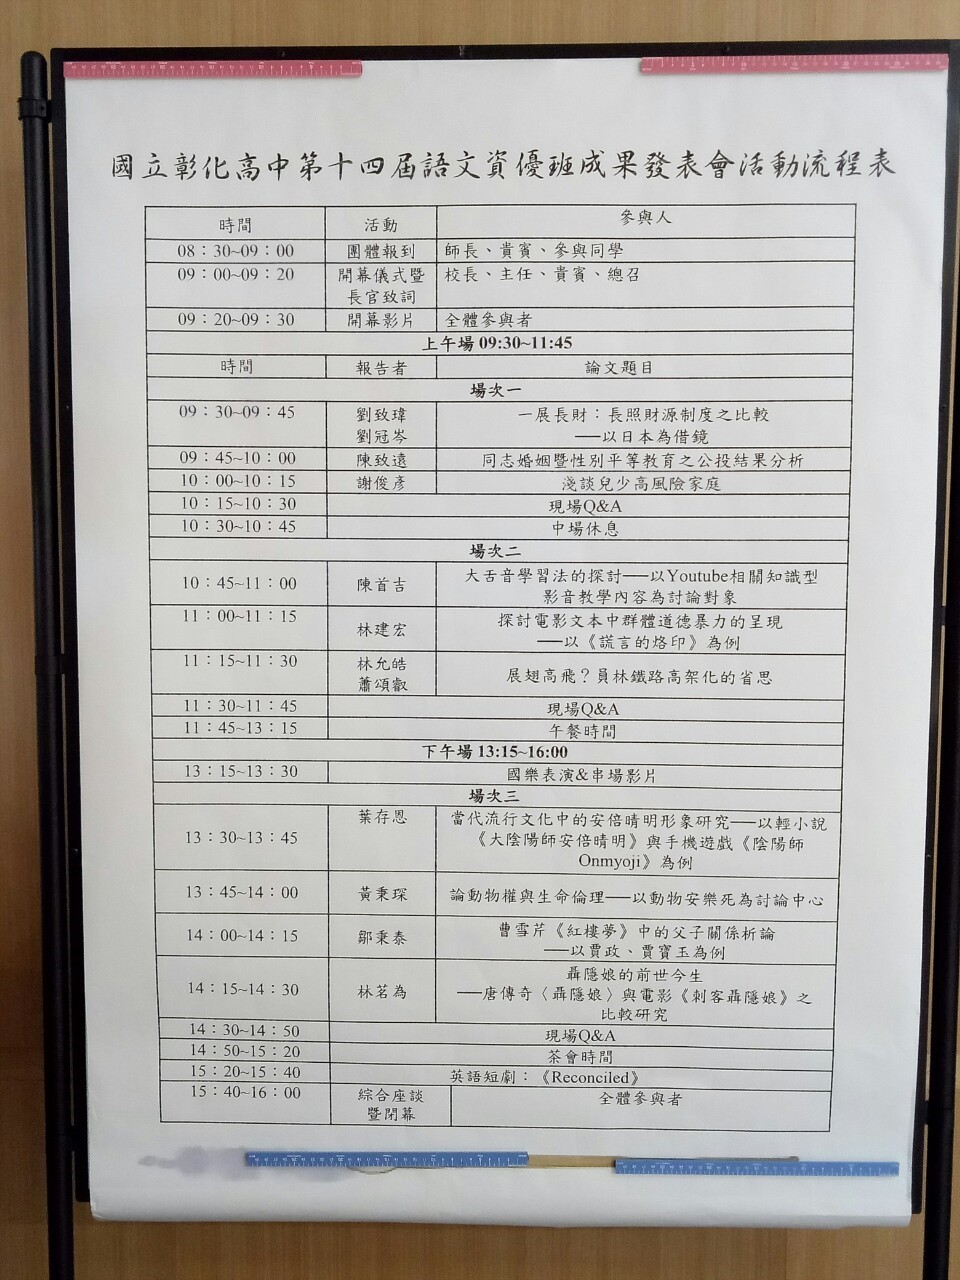 國立彰化高中第十四屆語文資優班成果發表會活動流程表
時間 活動 參與人
08：30~09：00 團體報到 師長、貴賓、參與同學
09：00~09：20 開幕儀式暨 校長、主任、貴賓、總召
長官致詞
09：20~09：30 開幕影片 全體參與者
上午場 09:30~11:45
時間 報告者 論文題目
場次一
09：30~09：45 劉致瑋 一展長財：長照財源制度之比較
劉冠岑 ──以日本為借鏡
09：45~10：00 陳致遠 同志婚姻暨性別平等教育之公投結果分析
10：00~10：15 謝俊彥 淺談兒少高風險家庭
10：15~10：30 現場Q&A
10：30~10：45 中場休息
場次二
10：45~11：00 陳首吉 大舌音學習法的探討──以Youtube相關知識型
影音教學內容為討論對象
11：00~11：15 林建宏 探討電影文本中群體道德暴力的呈現
──以《謊言的烙印》為例
11：15~11：30 林允皓 展翅高飛？員林鐵路高架化的省思
蕭頌叡
11：30~11：45 現場Q&A
11：45~13：15 午餐時間
下午場 13:15~16:00
13：15~13：30 國樂表演&串場影片
場次三
13：30~13：45 葉存恩 當代流行文化中的安倍晴明形象研究──以輕小說
《大陰陽師安倍晴明》與手機遊戲《陰陽師
Onmyoji》為例
13：45~14：00 黃秉琛 論動物權與生命倫理──以動物安樂死為討論中心
14：00~14：15 鄒秉泰 曹雪芹《紅樓夢》中的父子關係析論
──以賈政、賈寶玉為例
14：15~14：30 林茗為 聶隱娘的前世今生
──唐傳奇〈聶隱娘〉與電影《刺客聶隱娘》之
比較研究
14：30~14：50 現場Q&A
14：50~15：20 茶會時間
15：20~15：40 英語短劇：《Reconciled》
15：40~16：00 綜合座談 全體參與者
暨閉幕